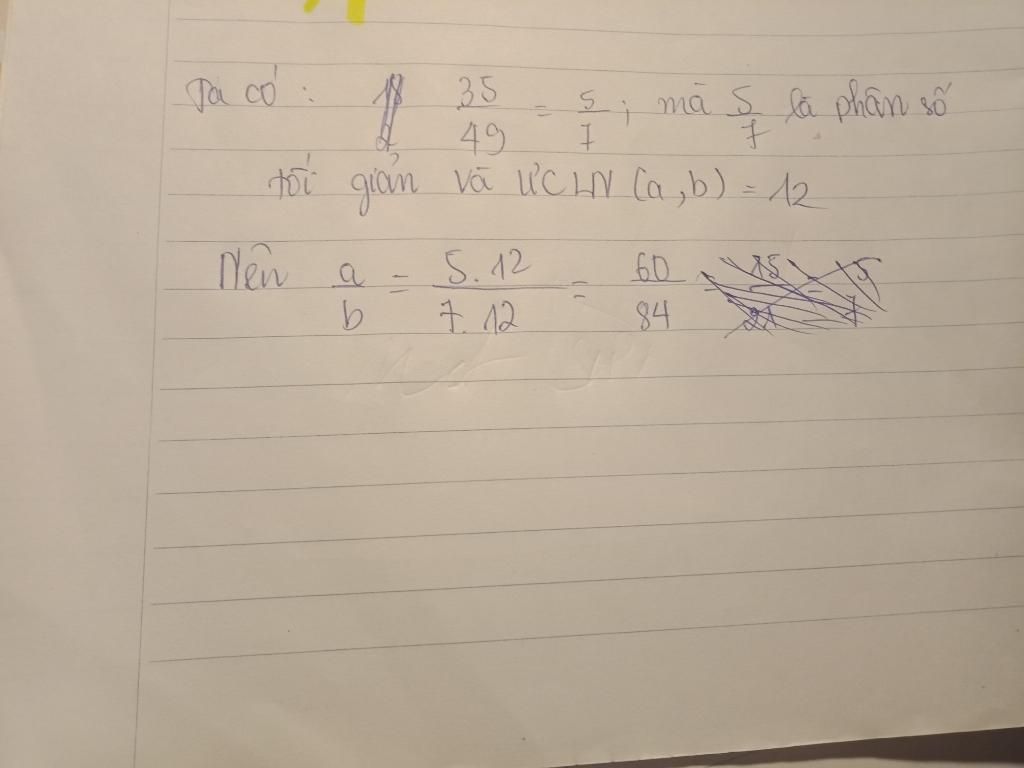 Ta có: 35/49 = 5/7; mà 5/7 là phân số
tối giản và ƯCLN(a,b) = 12
Nên a/b = 5.12/7.12 = 60/84